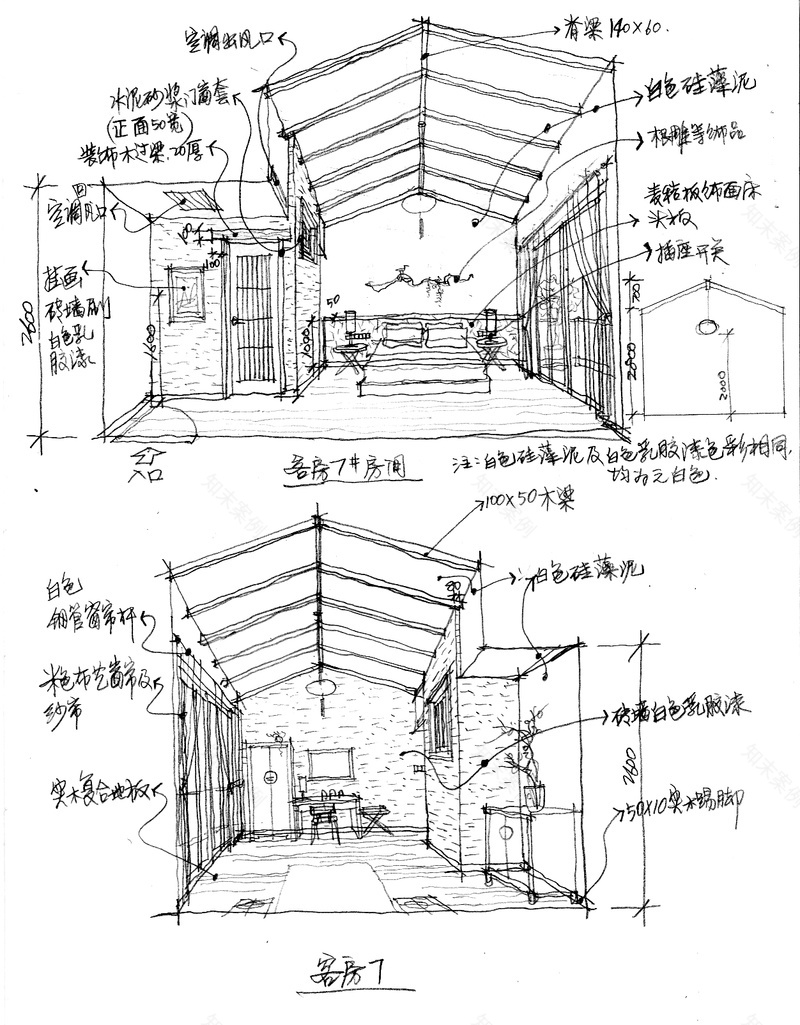 空调出风口
脊梁140×60.
水泥砂浆门窗套
(正面50宽)
装饰木过梁.20厚
白色硅藻泥
根雕等饰品
回
空调风口
麦秸板饰面床
头板
插座开关
挂画
砖墙刷
白色乳
胶漆
2600
1600
100
50
1000
700
2800
2000
入口
客房7#房间
注:白色硅藻泥及白色乳胶漆色彩相同,
均为元白色.
100×50木梁
白色
钢管窗帘杆
80
白色硅藻泥
米色布艺窗帘及
纱帘
砖墙白色乳胶漆
2600
实木复合地板
50×10实木踢脚
客房7
知末案例
知末案例
知末案例
知末案例